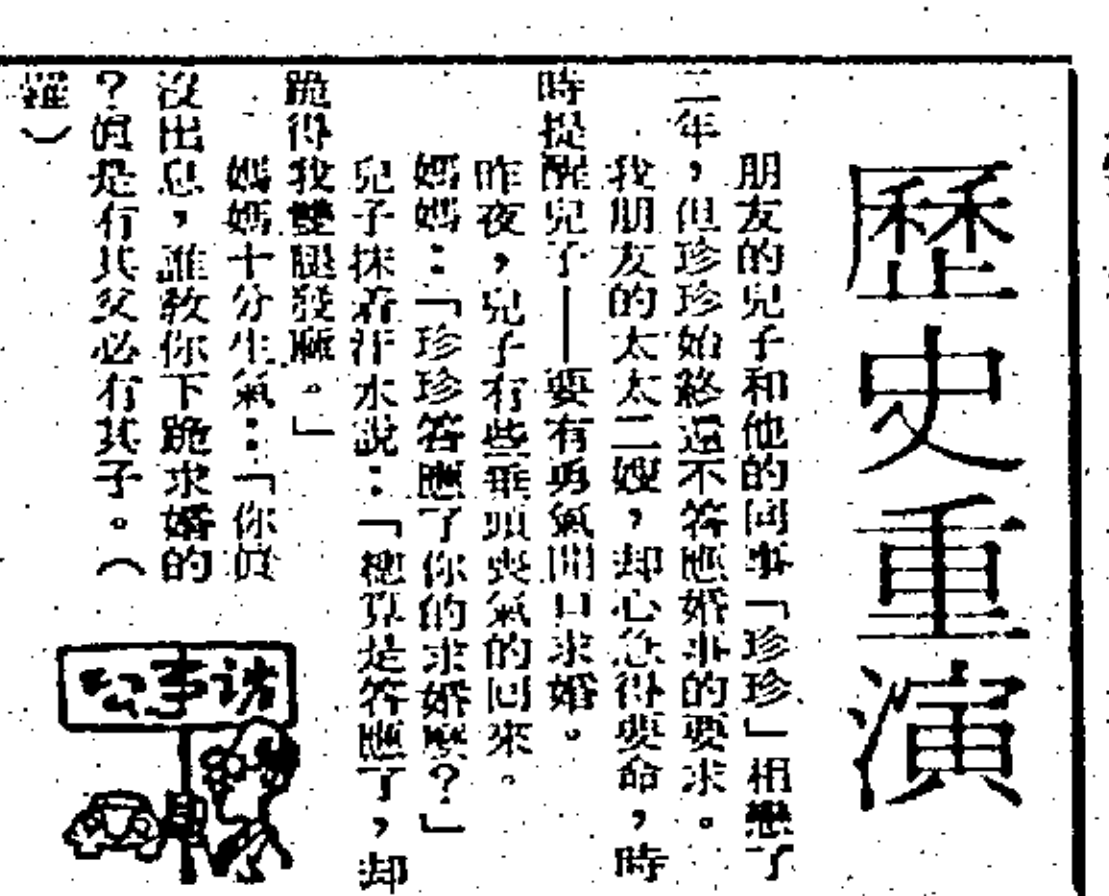 歷史重演
朋友的兒子和他的同事「珍珍」相戀了
二年，但珍珍始終還不答應婚事的要求。
我朋友的太太二嫂，却心急得要命，時
時提醒兒子——要有勇氣開口求婚。
昨夜，兒子有些垂頭喪氣的回來。
媽媽：「珍珍答應了你的求婚嘜？」
兒子抹着汗水說：「總算是答應了，却
跪得我雙腿發麻。」
媽媽十分生氣：「你眞
沒出息，誰教你下跪求婚的
？眞是有其父必有其子。（
羅）